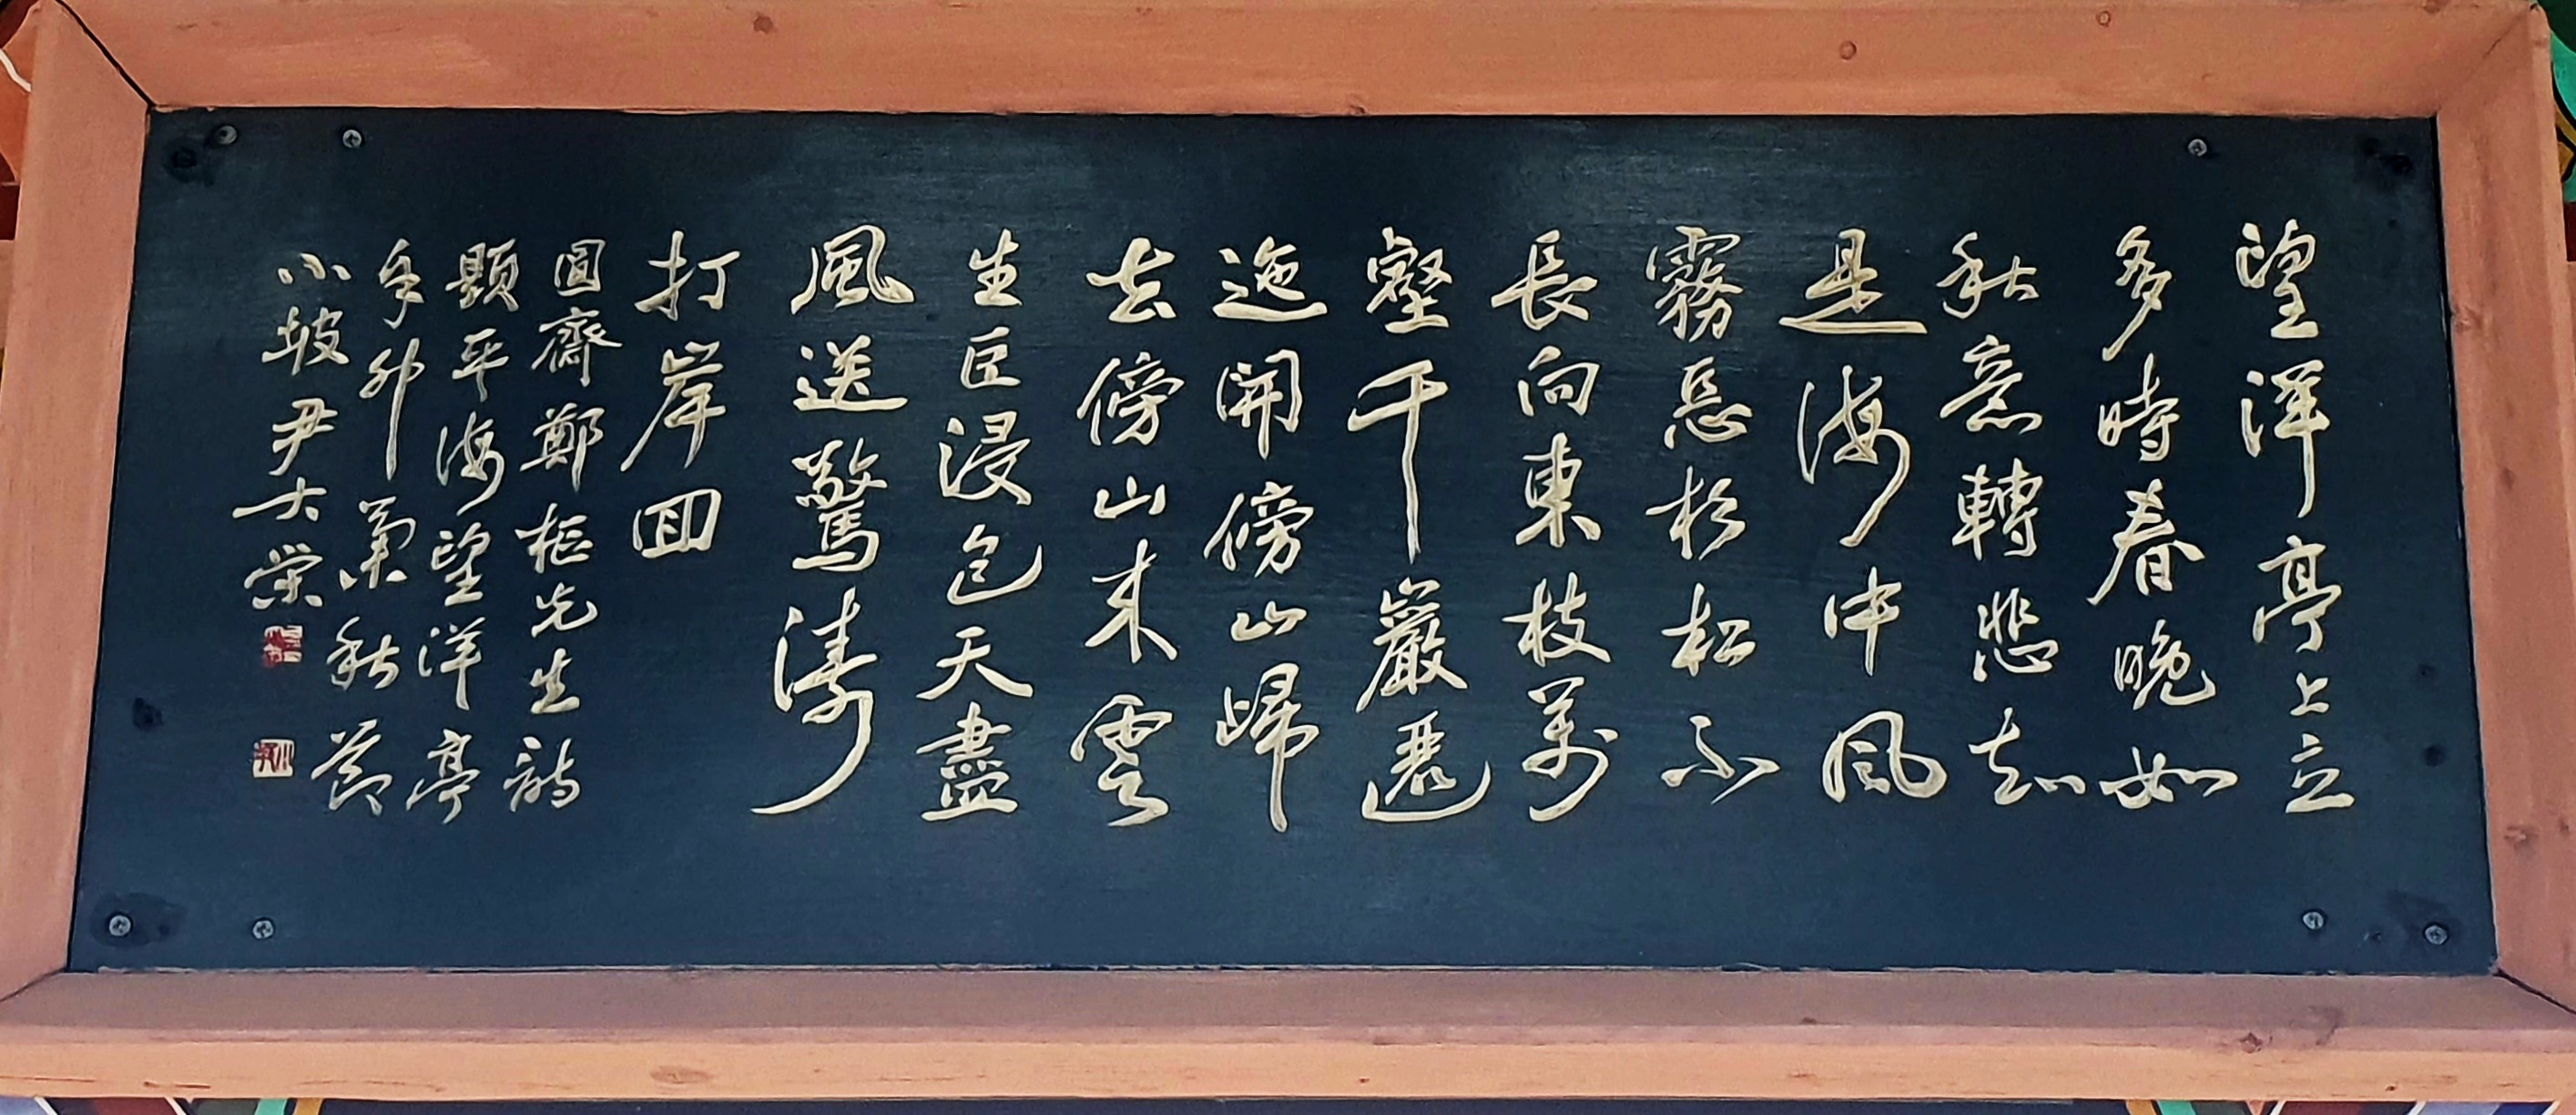 望洋亭上立
多時春晚如
秋意轉悲知
是海中風
霧惡杉松不
長向東枝萬
壑千巖邐
迤開傍山歸
去傍山來雲
生巨浸包天盡
風送驚濤
打岸回
圓齋鄭樞先生詩
題平海望洋亭
辛卯菊秋節
小坡尹大榮